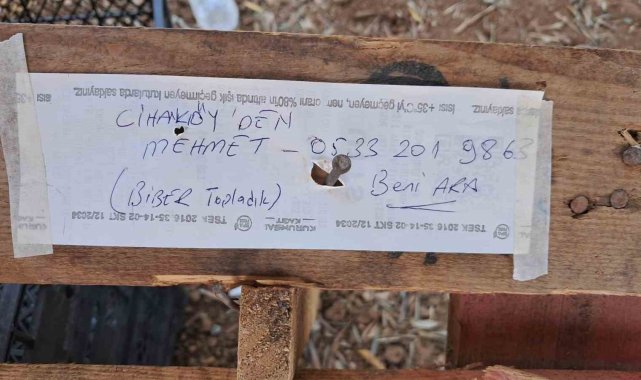 CİHAKÖY'DEN
MEHMET – 0533 201 9863
(BİBER Topladık) Beni ARA
ısısı +35°C'yi geçmeyen, nem oranı %80'in altında ışık geçirmeyen kutularda saklayınız.
saklayınız.
TSEK 2016 35-14-02 SKT 12/2034
KURUMSAL KAĞIT
TSEK 2016 35-14-02 SKT 12/2034